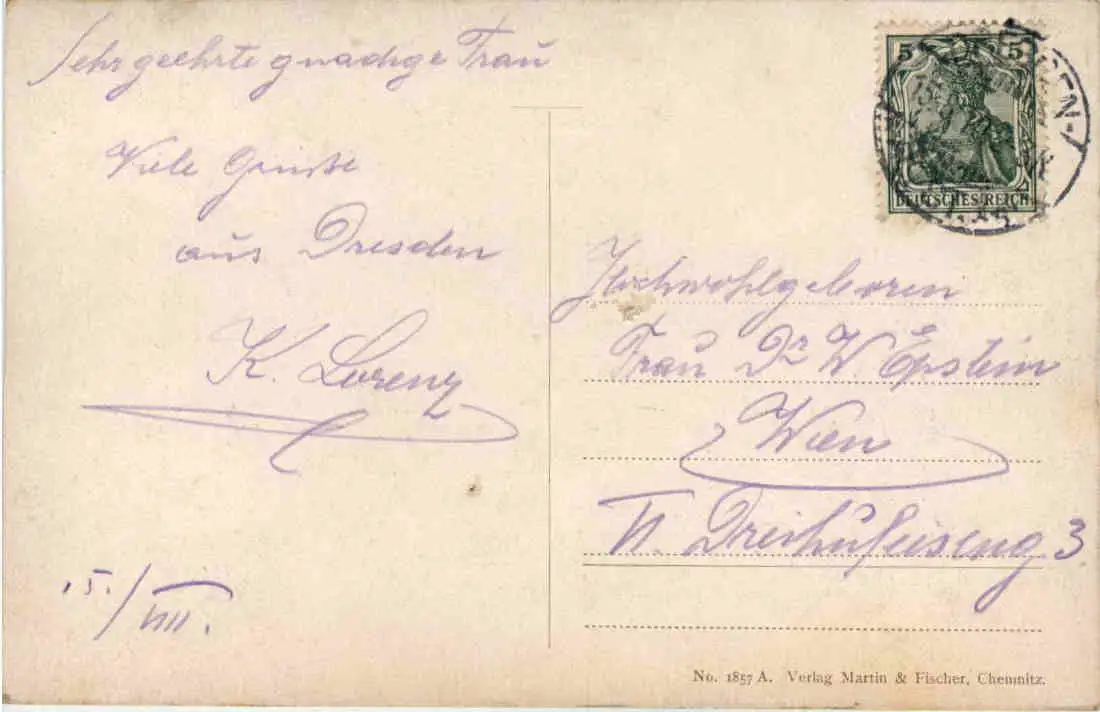 Sehr geehrte gnädige Frau
Viele Grüße
aus Dresden
K. Lorenz
15./VIII.
5 5
DEUTSCHES REICH
DRESDEN
Hochwohlgeboren
Frau Dr W. Epstein
Wien
Dreihufeiseng 3.
No. 1857 A. Verlag Martin & Fischer, Chemnitz.